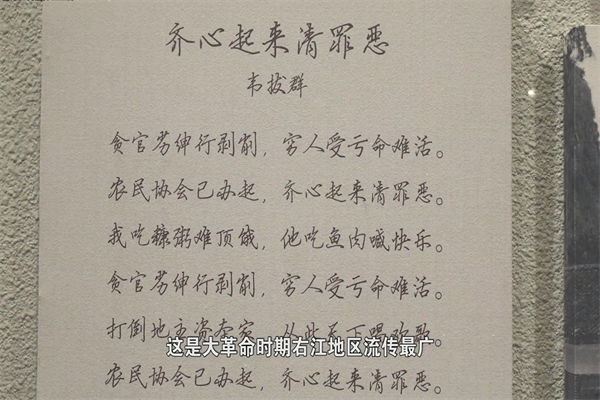 齐心起来清罪恶
韦拔群
贪官劣绅行剥削，穷人受亏命难活。
农民协会已办起，齐心起来清罪恶。
我吃糠粥难顶饿，他吃鱼肉喊快乐。
贪官劣绅行剥削，穷人受亏命难活。
打倒地主资本家，从此天下唱欢歌。
这是大革命时期右江地区流传最广
农民协会已办起，齐心起来清罪恶。